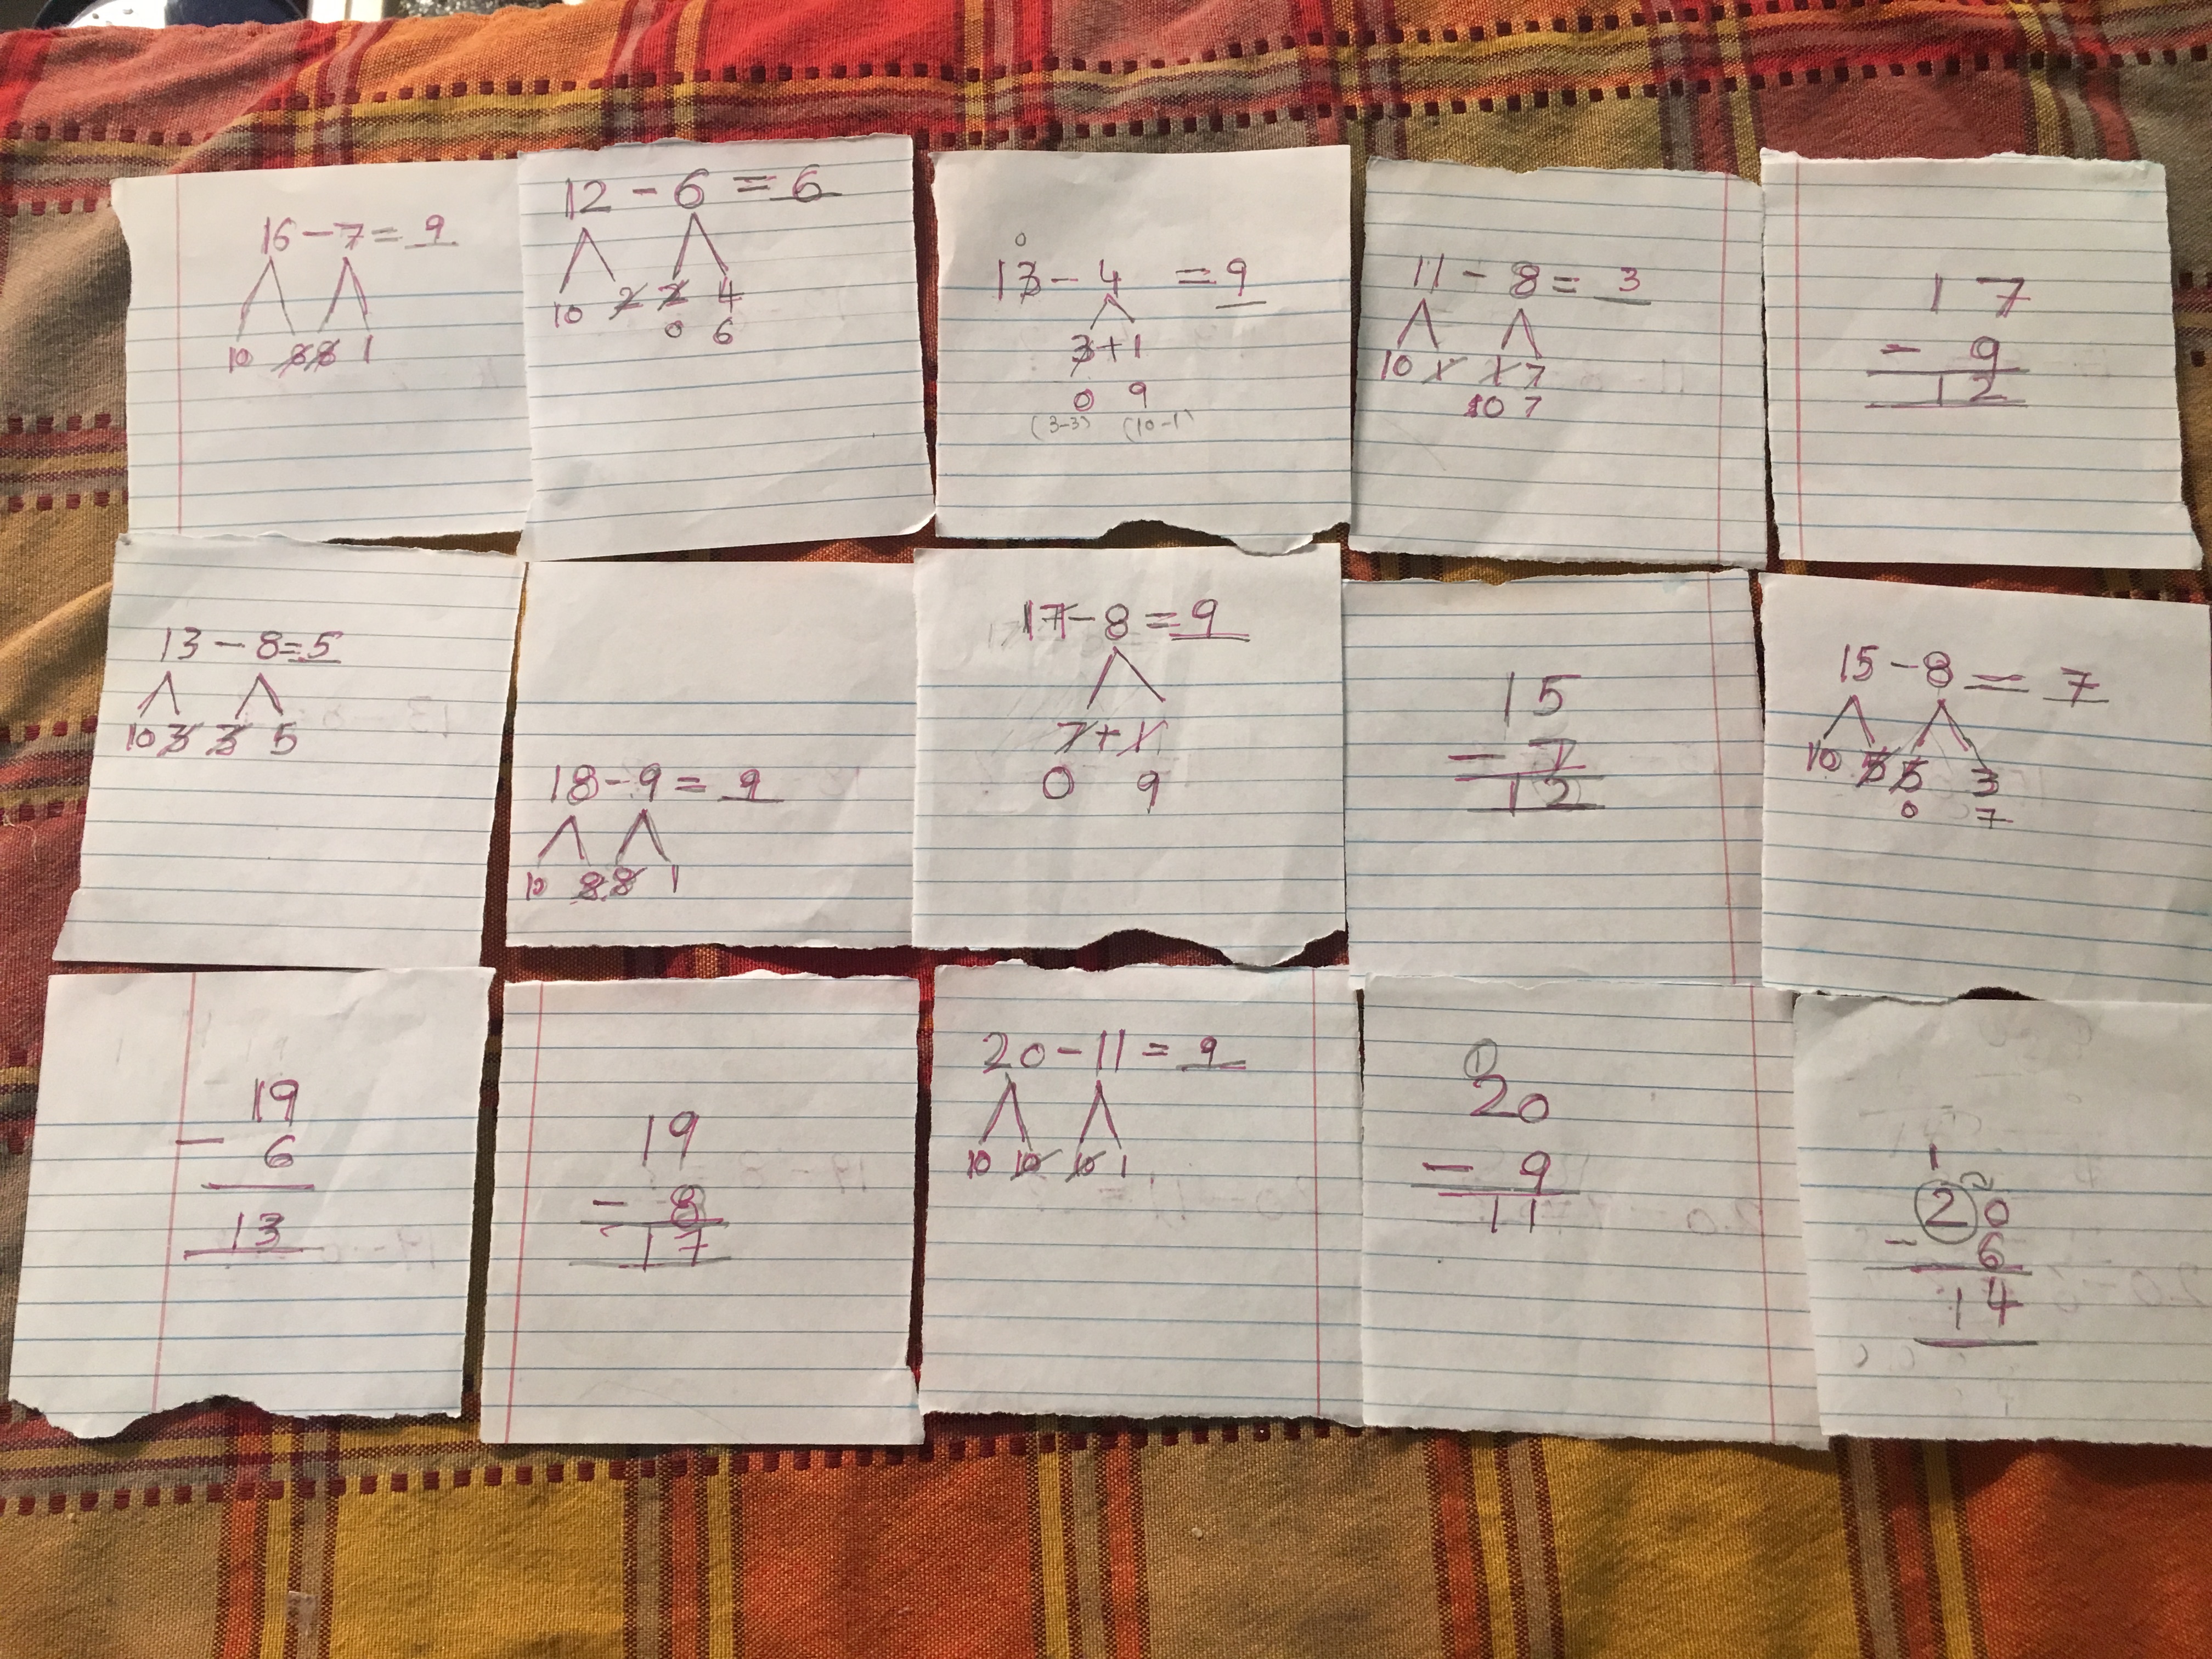 16 - 7 = 9
10 8 8 1
12 - 6 = 6
10 2 2 4
0 6
0
13 - 4 = 9
3 + 1
0 9
(3-3) (10-1)
11 - 8 = 3
10 1 1 7
10 7
17
- 9
12
13 - 8 = 5
10 3 3 5
18 - 9 = 9
10 8 8 1
17 - 8 = 9
7 + 1
0 9
15
- 7
12
15 - 8 = 7
10 5 5 3
0 7
19
- 6
13
19
- 8
17
20 - 11 = 9
10 10 10 1
1
20
- 9
11
1
20
- 6
14